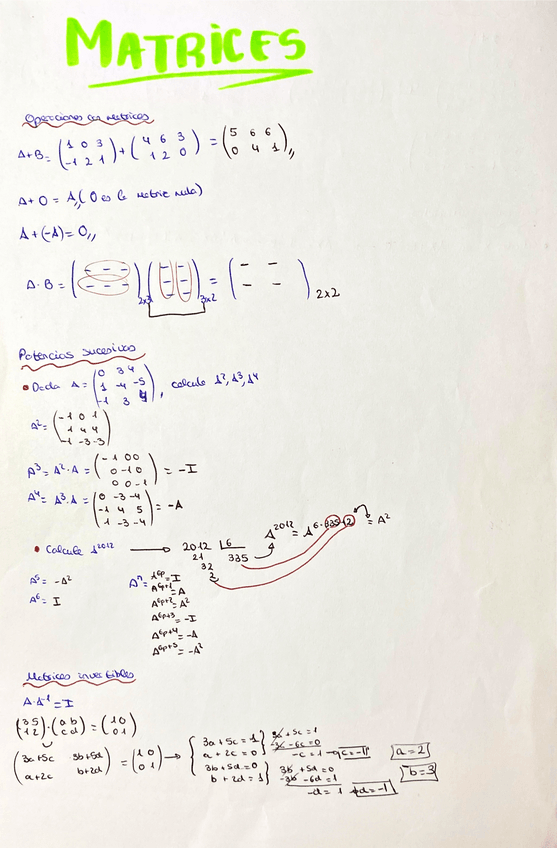 MATRICES
Operaciones con matrices
A+B = (1 0 3 / -1 2 1) + (4 6 3 / 1 2 0) = (5 6 6 / 0 4 1),,
A + O = A,, (O es la matriz nula)
A + (-A) = O,,
A · B = ( - - - / - - - )2x3 ( - - / - - / - - )3x2 = ( - - / - - )2x2
Potencias sucesivas
• Dada A = (0 3 4 / 1 -4 -5 / -1 3 4), calcule A², A³, A⁴
A² = (-1 0 1 / 1 4 4 / -1 -3 -3)
A³ = A² · A = (-1 0 0 / 0 -1 0 / 0 0 -1) = -I
A⁴ = A³ · A = (0 -3 -4 / -1 4 5 / 1 -3 -4) = -A
• Calcule A²⁰¹² → 2012 |6
21 335
32
2
A²⁰¹² = A⁶·³³⁵⁺² = A²
A⁵ = -A²
A⁶ = I
Aⁿ = A⁶ᵖ = I
A⁶ᵖ⁺¹ = A
A⁶ᵖ⁺² = A²
A⁶ᵖ⁺³ = -I
A⁶ᵖ⁺⁴ = -A
A⁶ᵖ⁺⁵ = -A²
Matrices invertibles
A · A⁻¹ = I
(3 5 / 1 2) · (a b / c d) = (1 0 / 0 1)
(3a+5c 3b+5d / a+2c b+2d) = (1 0 / 0 1) →
3a + 5c = 1
a + 2c = 0
3b + 5d = 0
b + 2d = 1
3a + 5c = 1
-3a - 6c = 0
-c = 1 → c = -1
a = 2
3b + 5d = 0
-3b - 6d = 1
-d = 1 d = -1
b = 3